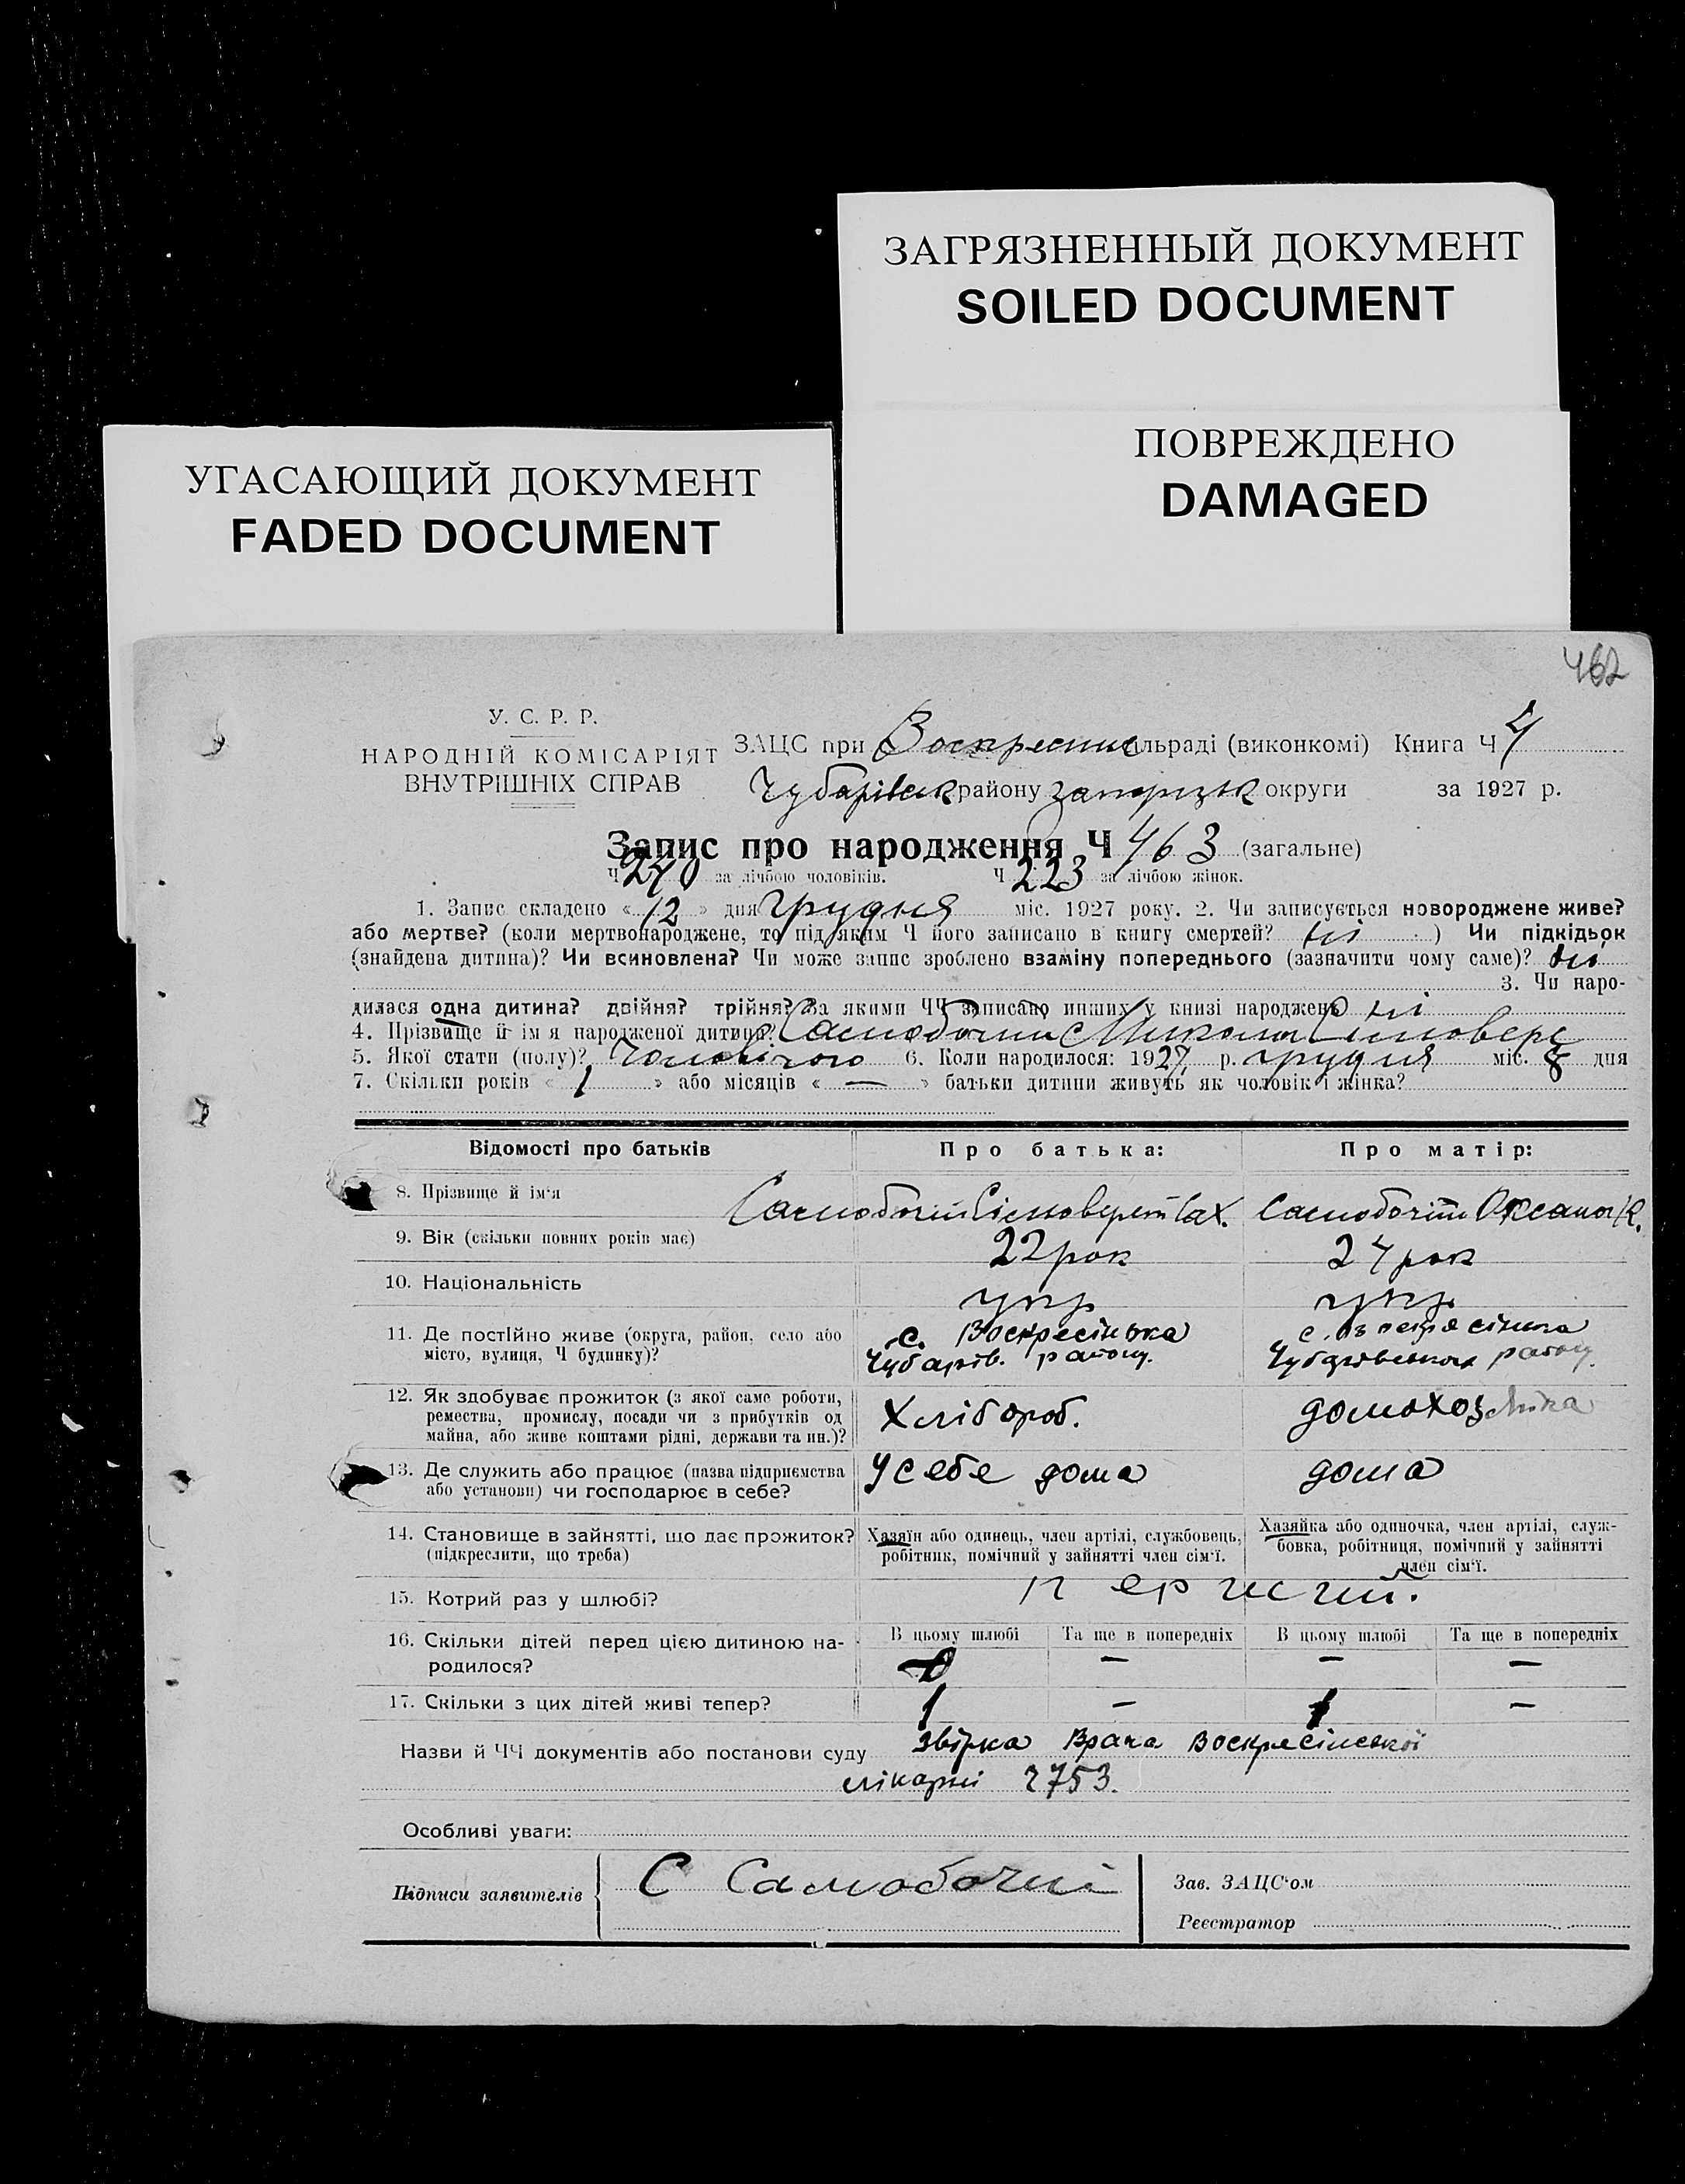 ЗАГРЯЗНЕННЫЙ ДОКУМЕНТ
SOILED DOCUMENT
ПОВРЕЖДЕНО
DAMAGED
УГАСАЮЩИЙ ДОКУМЕНТ
FADED DOCUMENT
462
У. С. Р. Р.
НАРОДНІЙ КОМІСАРІЯТ
ВНУТРІШНІХ СПРАВ
ЗАЦС при Воскресин ільраді (виконкомі) Книга Ч 4
Чубарівск району Запоріжк округи за 1927 р.
Запис про народження Ч 463 (загальне)
Ч 240 за лічбою чоловіків. Ч 223 за лічбою жінок.
1. Запис складено « 12 » дня грудня міс. 1927 року. 2. Чи записується новороджене живе?
або мертве? (коли мертвонароджене, то під яким Ч його записано в книгу смертей? ні ) Чи підкідьок
(знайдена дитина)? Чи всиновлена? Чи може запис зроблено взаміну попереднього (зазначити чому саме)? ні
3. Чи наро-
дилася одна дитина? двійня? трійня? За якими ЧЧ записано инших у книзі народжень ні
4. Прізвище й ім'я народженої дитини? Самобочий Микола
5. Якої стати (полу)? Чоловічого 6. Коли народилося: 1927 р. грудня міс. 8 дня
7. Скільки років « 1 » або місяців « — » батьки дитини живуть як чоловік і жінка?
Відомості про батьків Про батька: Про матір:
8. Прізвище й ім'я Самобочий Сах. Самобочій Оксана К.
9. Вік (скільки повних років має) 22 рок 24 рок
10. Національність укр укр
11. Де постійно живе (округа, район, село або
місто, вулиця, Ч будинку)?
с. Воскресінька
Чубарів. району.
Чубарівського району
12. Як здобуває прожиток (з якої саме роботи,
ремества, промислу, посади чи з прибутків од
майна, або живе коштами рідні, держави та ин.)?
Хлібороб. домохозяйка
13. Де служить або працює (назва підприємства
або установи) чи господарює в себе?
У себе дома дома
14. Становище в зайнятті, що дає прожиток?
(підкреслити, що треба)
Хазяїн або одинець, член артілі, службовець,
робітник, помічний у зайнятті член сім'ї.
Хазяйка або одиночка, член артілі, служ-
бовка, робітниця, помічний у зайнятті
член сім'ї.
15. Котрий раз у шлюбі? перший.
16. Скільки дітей перед цією дитиною на-
родилося?
В цьому шлюбі Та ще в попередніх В цьому шлюбі Та ще в попередніх
— — —
17. Скільки з цих дітей живі тепер? 1 — 1 —
Назви й ЧЧ документів або постанови суду Звірка Врача Воскресінської
лікарні 2753.
Особливі уваги:
Підписи заявителів С Самобочий
Зав. ЗАЦС'ом
Реєстратор